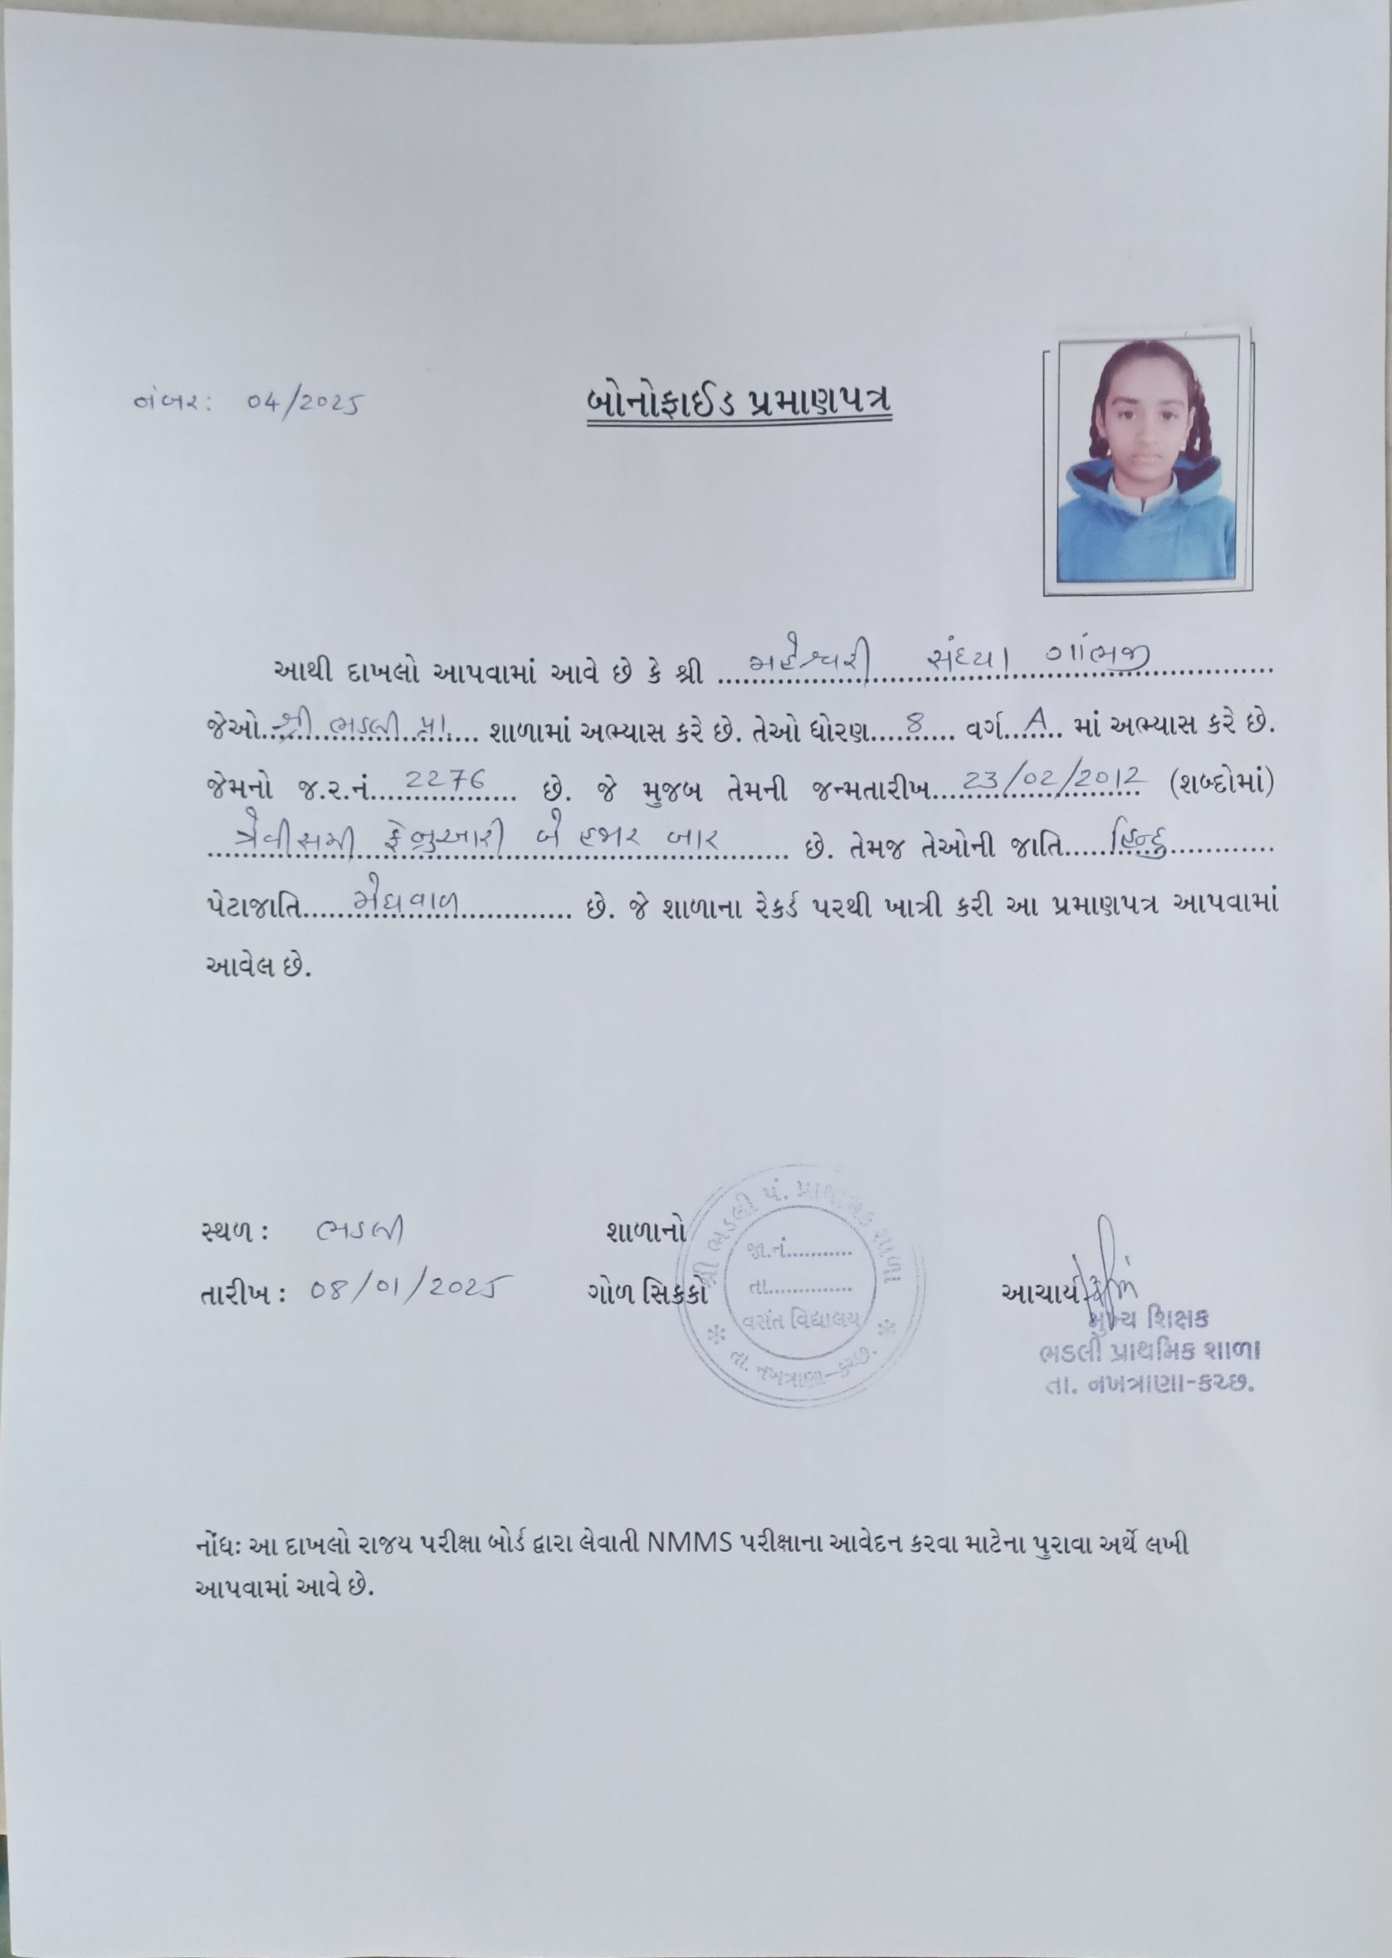 નંબર: 04/2025
બોનોફાઈડ પ્રમાણપત્ર
આથી દાખલો આપવામાં આવે છે કે શ્રી મહેશ્વરી સંધ્યા ગાંભજી
જેઓ શ્રી ભડલી પ્રા. શાળામાં અભ્યાસ કરે છે. તેઓ ધોરણ 8 વર્ગ A માં અભ્યાસ કરે છે.
જેમનો જ.ર.નં. 2276 છે. જે મુજબ તેમની જન્મતારીખ 23/02/2012 (શબ્દોમાં)
ત્રેવીસમી ફેબ્રુઆરી બે હજાર બાર છે. તેમજ તેઓની જાતિ હિન્દુ
પેટાજાતિ મેઘવાળ છે. જે શાળાના રેકર્ડ પરથી ખાત્રી કરી આ પ્રમાણપત્ર આપવામાં
આવેલ છે.
સ્થળ : ભડલી
તારીખ : 08/01/2025
શાળાનો
ગોળ સિક્કો
શ્રી ભડલી પં. પ્રાથમિક શાળા
જા.નં...........
તા..............
વસંત વિદ્યાલય
તા. નખત્રાણા-કચ્છ.
આચાર્ય
મુખ્ય શિક્ષક
ભડલી પ્રાથમિક શાળા
તા. નખત્રાણા-કચ્છ.
નોંધ: આ દાખલો રાજય પરીક્ષા બોર્ડ દ્વારા લેવાતી NMMS પરીક્ષાના આવેદન કરવા માટેના પુરાવા અર્થે લખી
આપવામાં આવે છે.